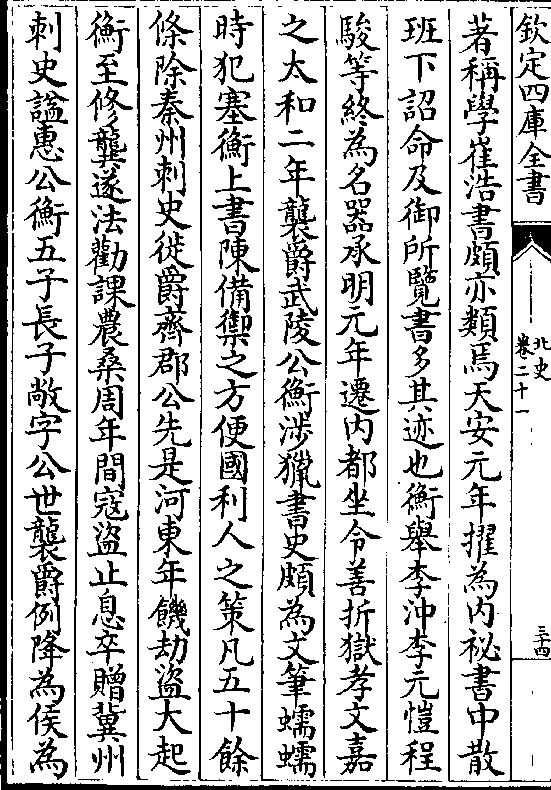 欽定四庫全書
北史
卷二十一
三十四
著稱學崔浩書頗亦類焉天安元年擢為内祕書中散
班下詔命及御所覽書多其迹也衡舉李沖李元愷程
駿等終為名器承明元年遷内都坐令善折獄孝文嘉
之太和二年襲爵武陵公衡涉獵書史頗為文筆蠕蠕
時犯塞衡上書陳備禦之方便國利人之策凡五十餘
條除秦州刺史徙爵齊郡公先是河東年饑劫盜大起
衡至修龔遂法勸課農桑周年間寇盜止息卒贈冀州
刺史諡惠公衡五子長子敞字公世襲爵例降為侯為